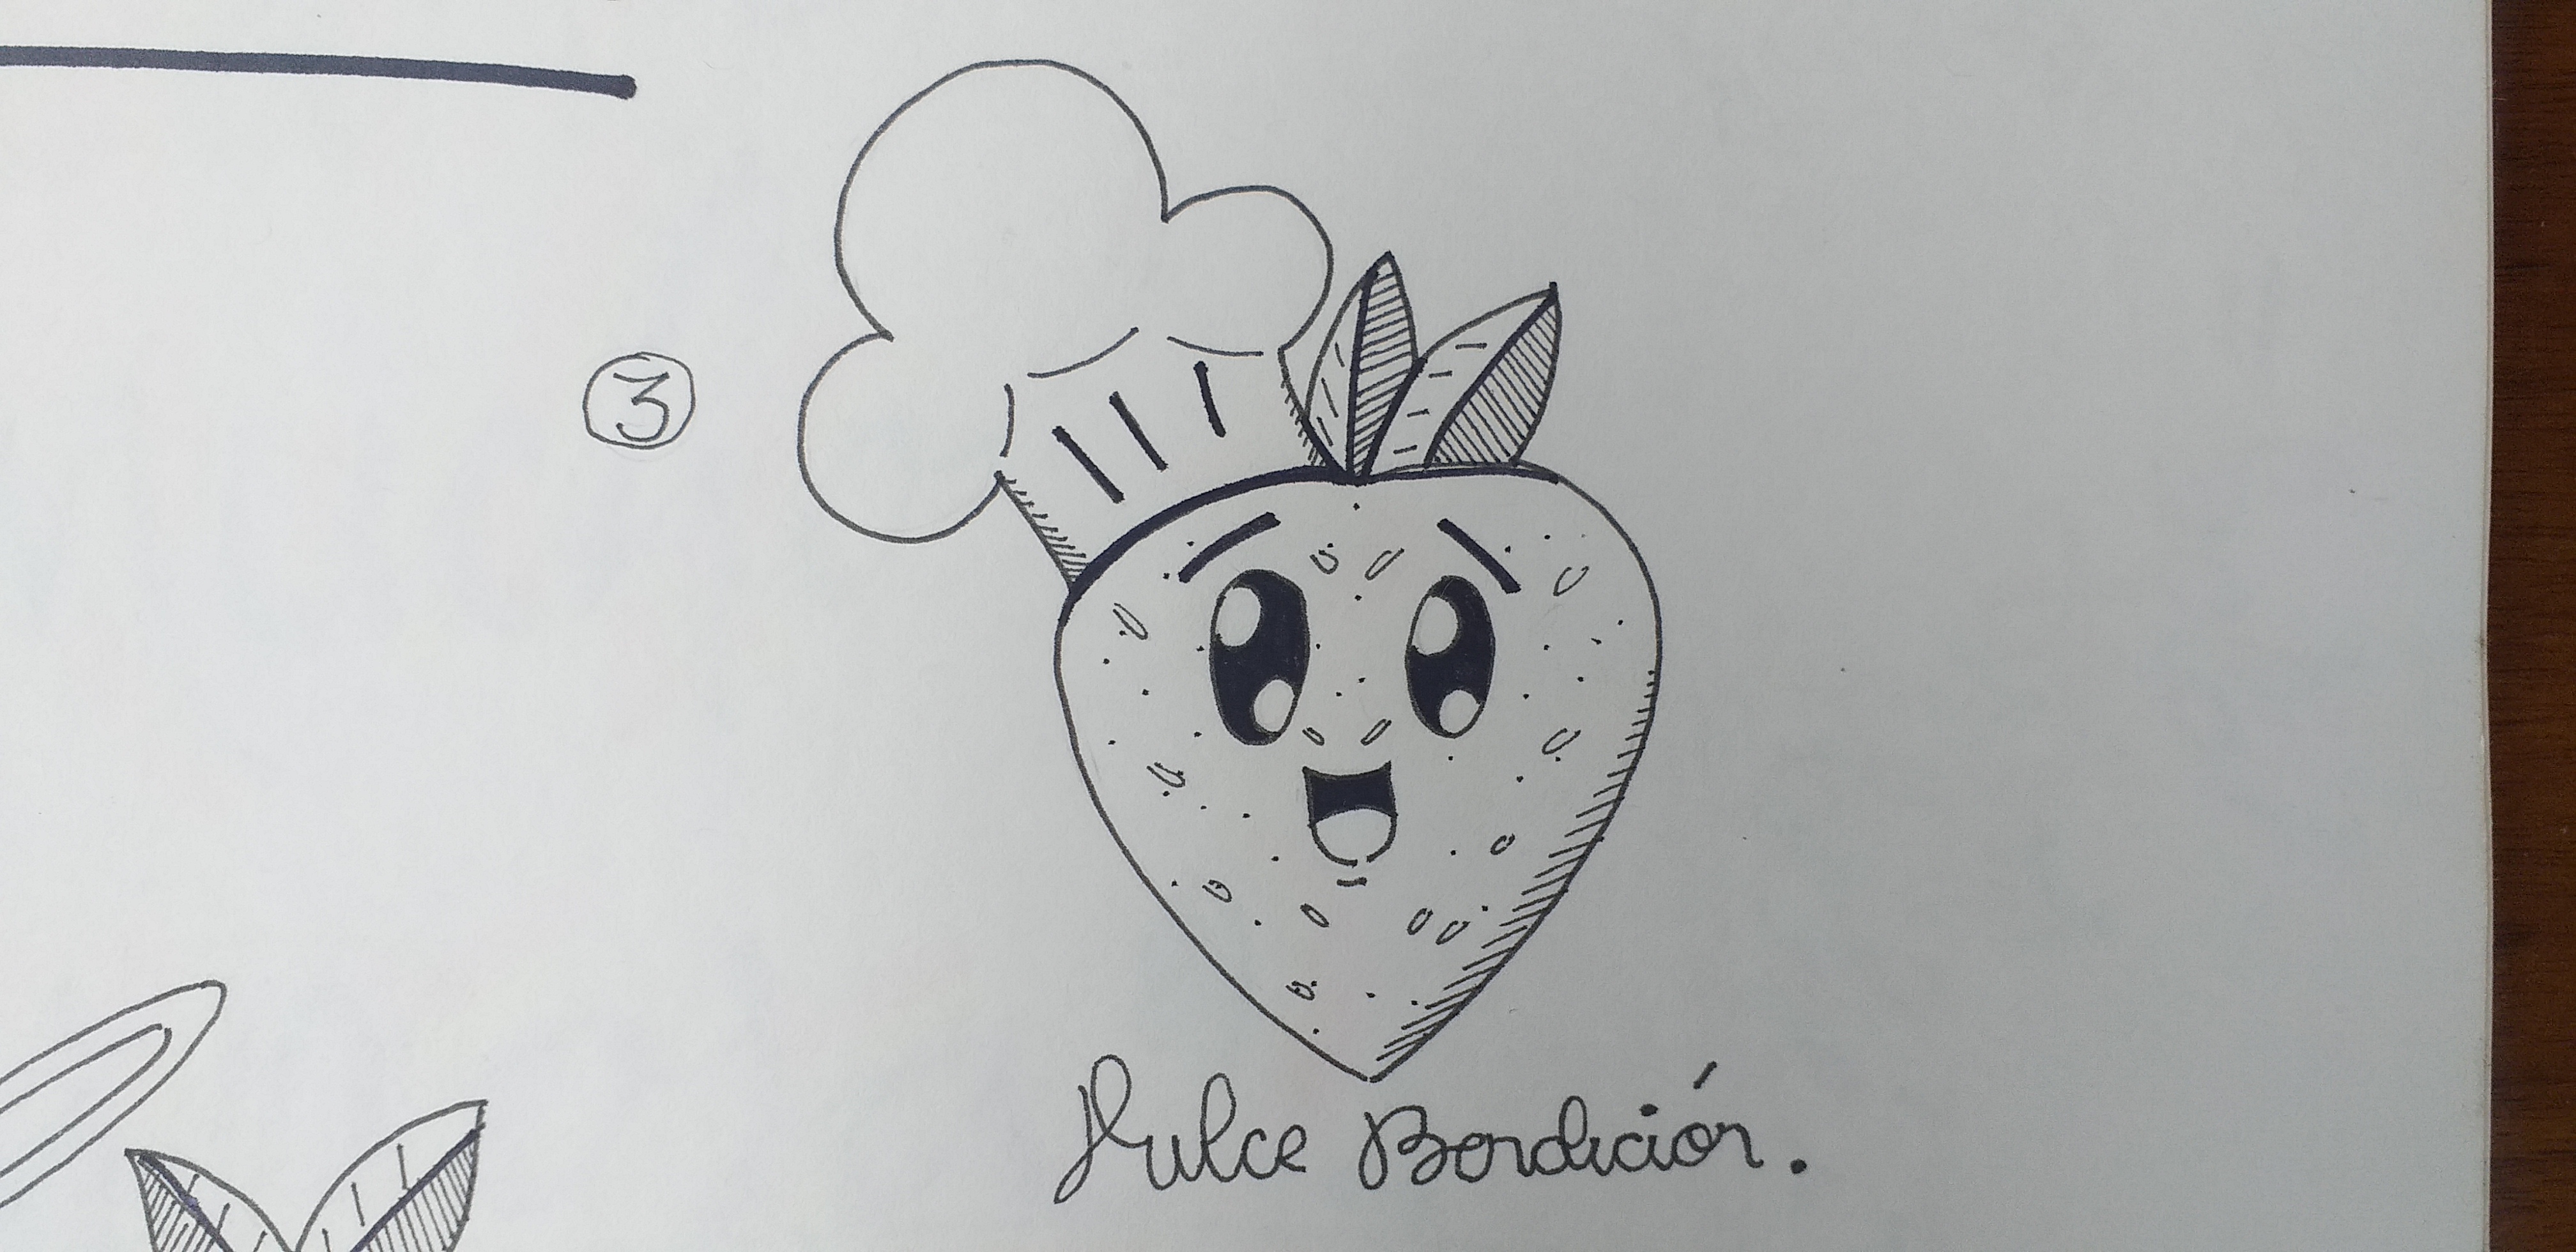 3
Dulce Bendición.